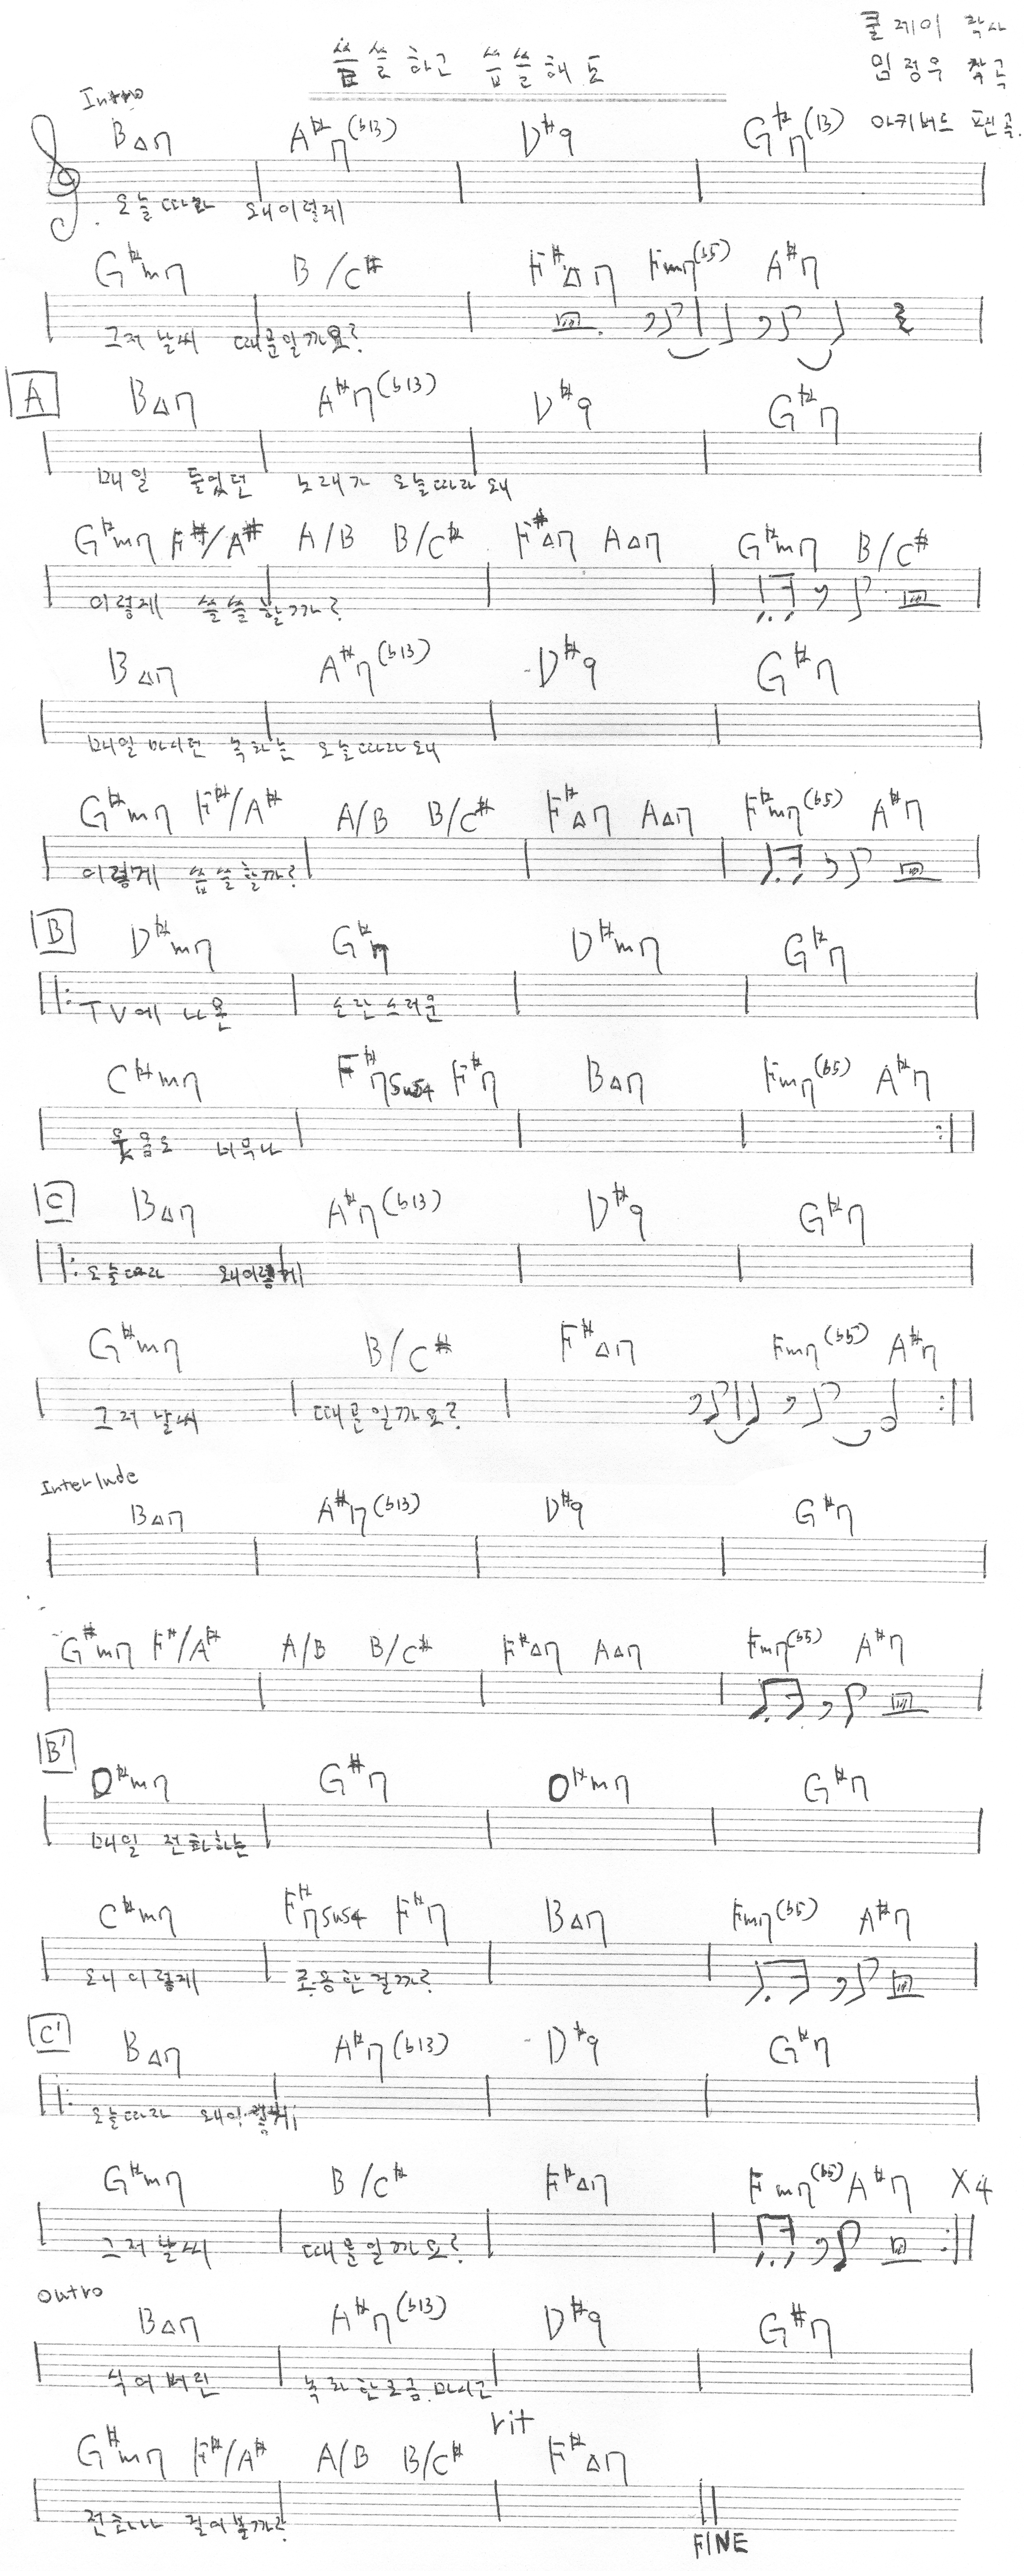 쿨 레이 작사
씁쓸하고 씁쓸해도
임정우 작곡
Intro
아키버드 편곡.
B△7 A#7(b13) D#9 G#7(13)
오늘따라 왜이렇게
G#m7 B/C# F#△7 Fm7(b5) A#7
그저 날씨 때문일까요?
A
B△7 A#7(b13) D#9 G#7
매일 들었던 노래가 오늘따라 왜
G#m7 F#/A# A/B B/C# F#△7 A△7 G#m7 B/C#
이렇게 쓸쓸할까?
B△7 A#7(b13) D#9 G#7
매일 마시던 녹차는 오늘따라 왜
G#m7 F#/A# A/B B/C# F#△7 A△7 F#m7(b5) A#7
이렇게 씁쓸할까?
B
D#m7 G#7 D#m7 G#7
TV에 나온 소란스러운
C#m7 F#7sus4 F#7 B△7 Fm7(b5) A#7
웃음도 너무나
C
B△7 A#7(b13) D#9 G#7
오늘따라 왜이렇게
G#m7 B/C# F#△7 Fm7(b5) A#7
그저 날씨 때문일까요?
Interlude
B△7 A#7(b13) D#9 G#7
G#m7 F#/A# A/B B/C# F#△7 A△7 Fm7(b5) A#7
B'
D#m7 G#7 D#m7 G#7
매일 전화하는
C#m7 F#7sus4 F#7 B△7 Fm7(b5) A#7
왜 이렇게 조용한걸까?
C'
B△7 A#7(b13) D#9 G#7
오늘따라 왜이렇게
G#m7 B/C# F#△7 Fm7(b5) A#7 X4
그저 날씨 때문일까요?
outro
B△7 A#7(b13) D#9 G#7
식어버린 녹차한모금 마시고
rit
G#m7 F#/A# A/B B/C# F#△7
전화나 걸어볼까?
FINE